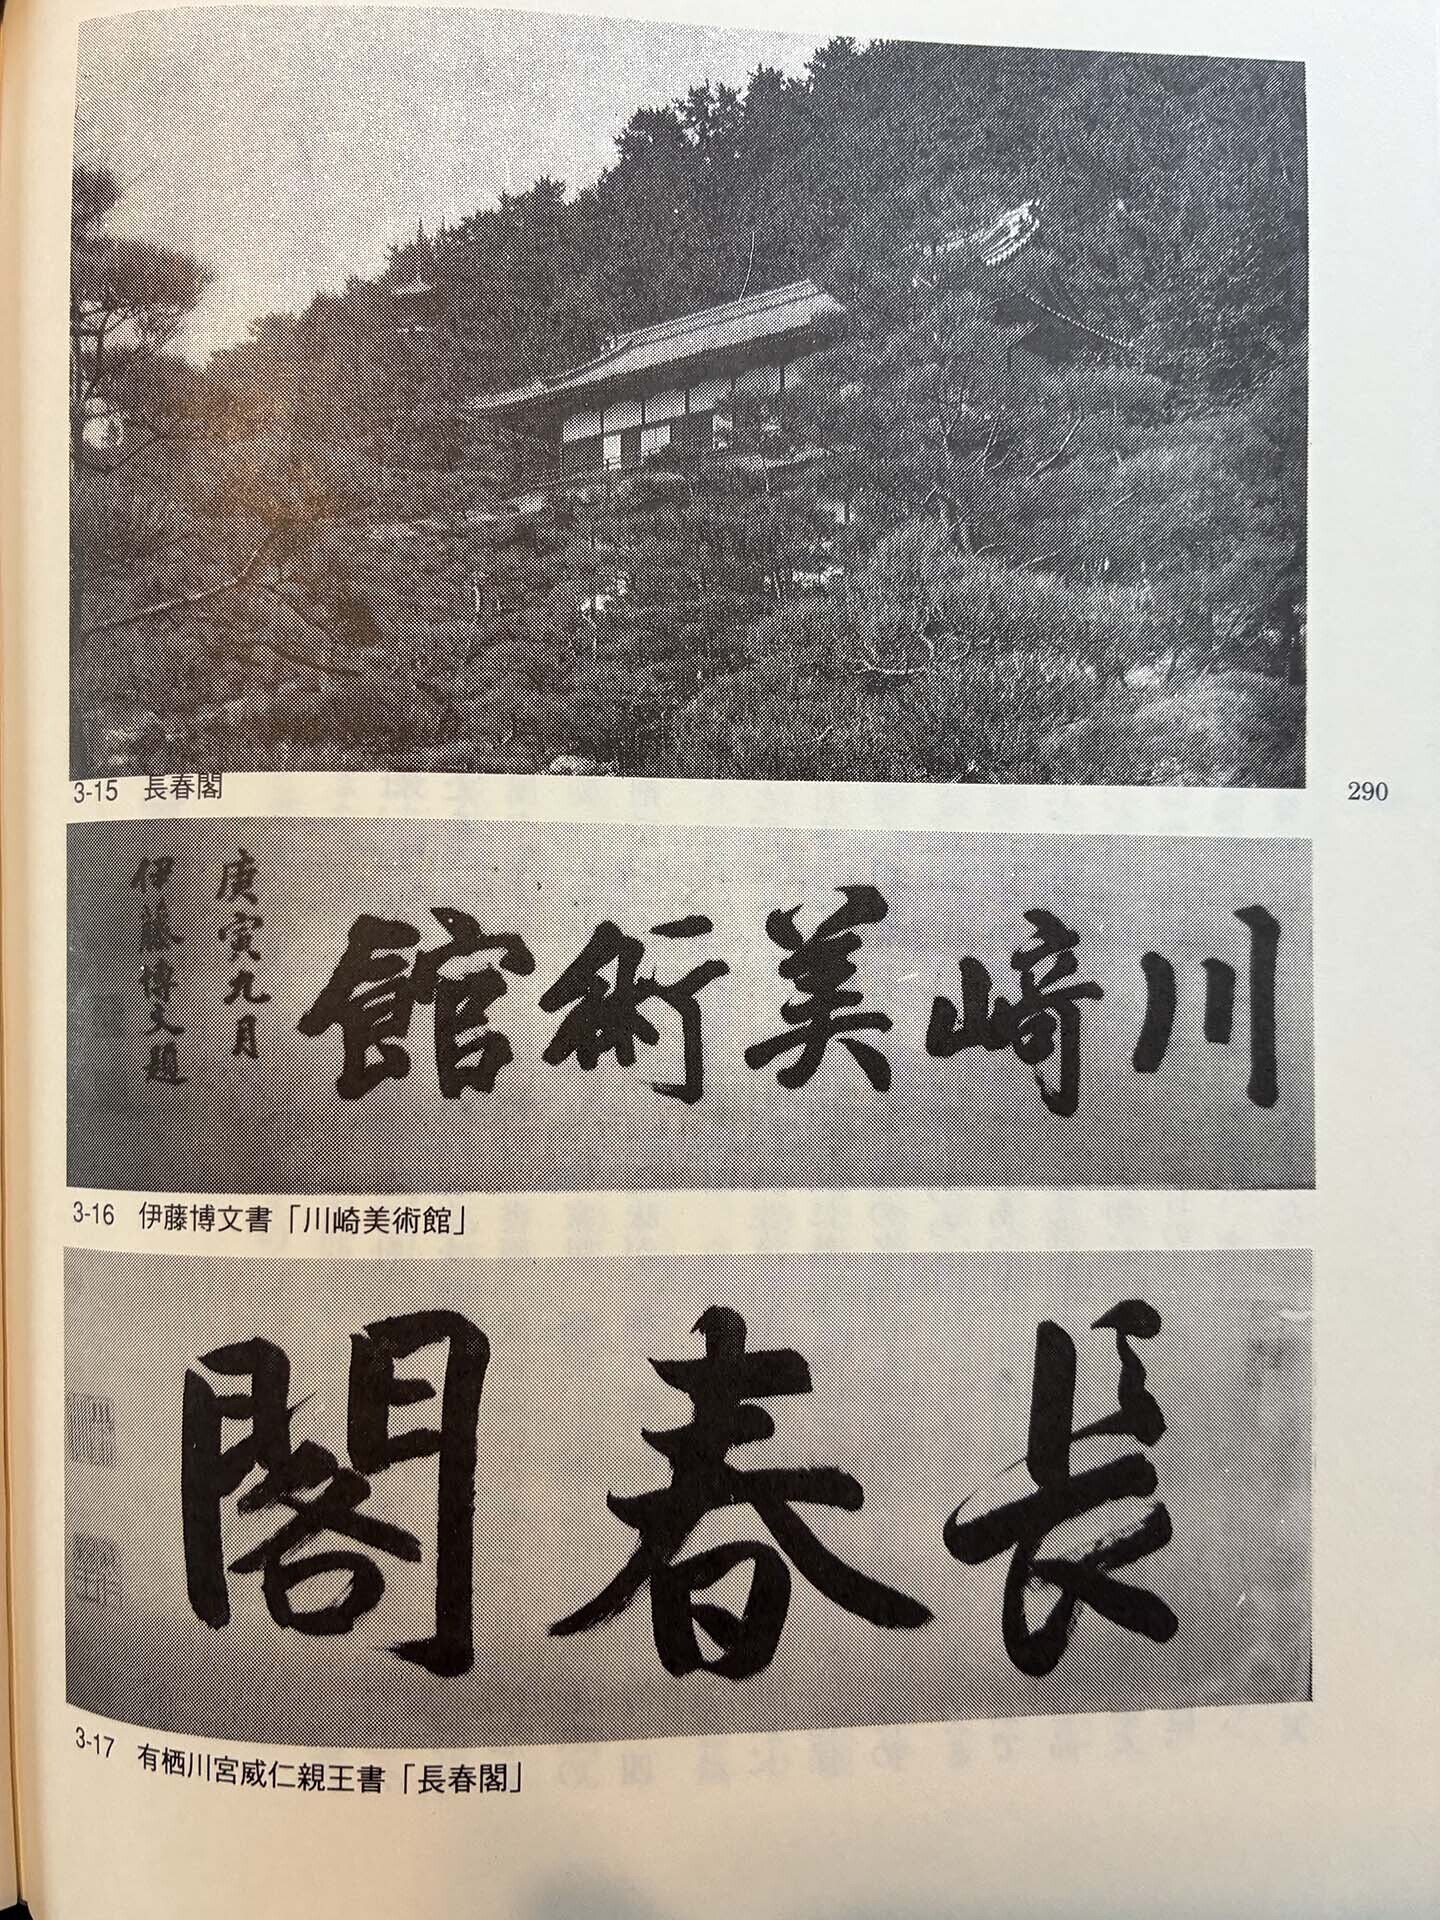 3-15 長春閣
290
川崎美術館
庚寅九月
伊藤博文題
3-16 伊藤博文書「川崎美術館」
長春閣
3-17 有栖川宮威仁親王書「長春閣」